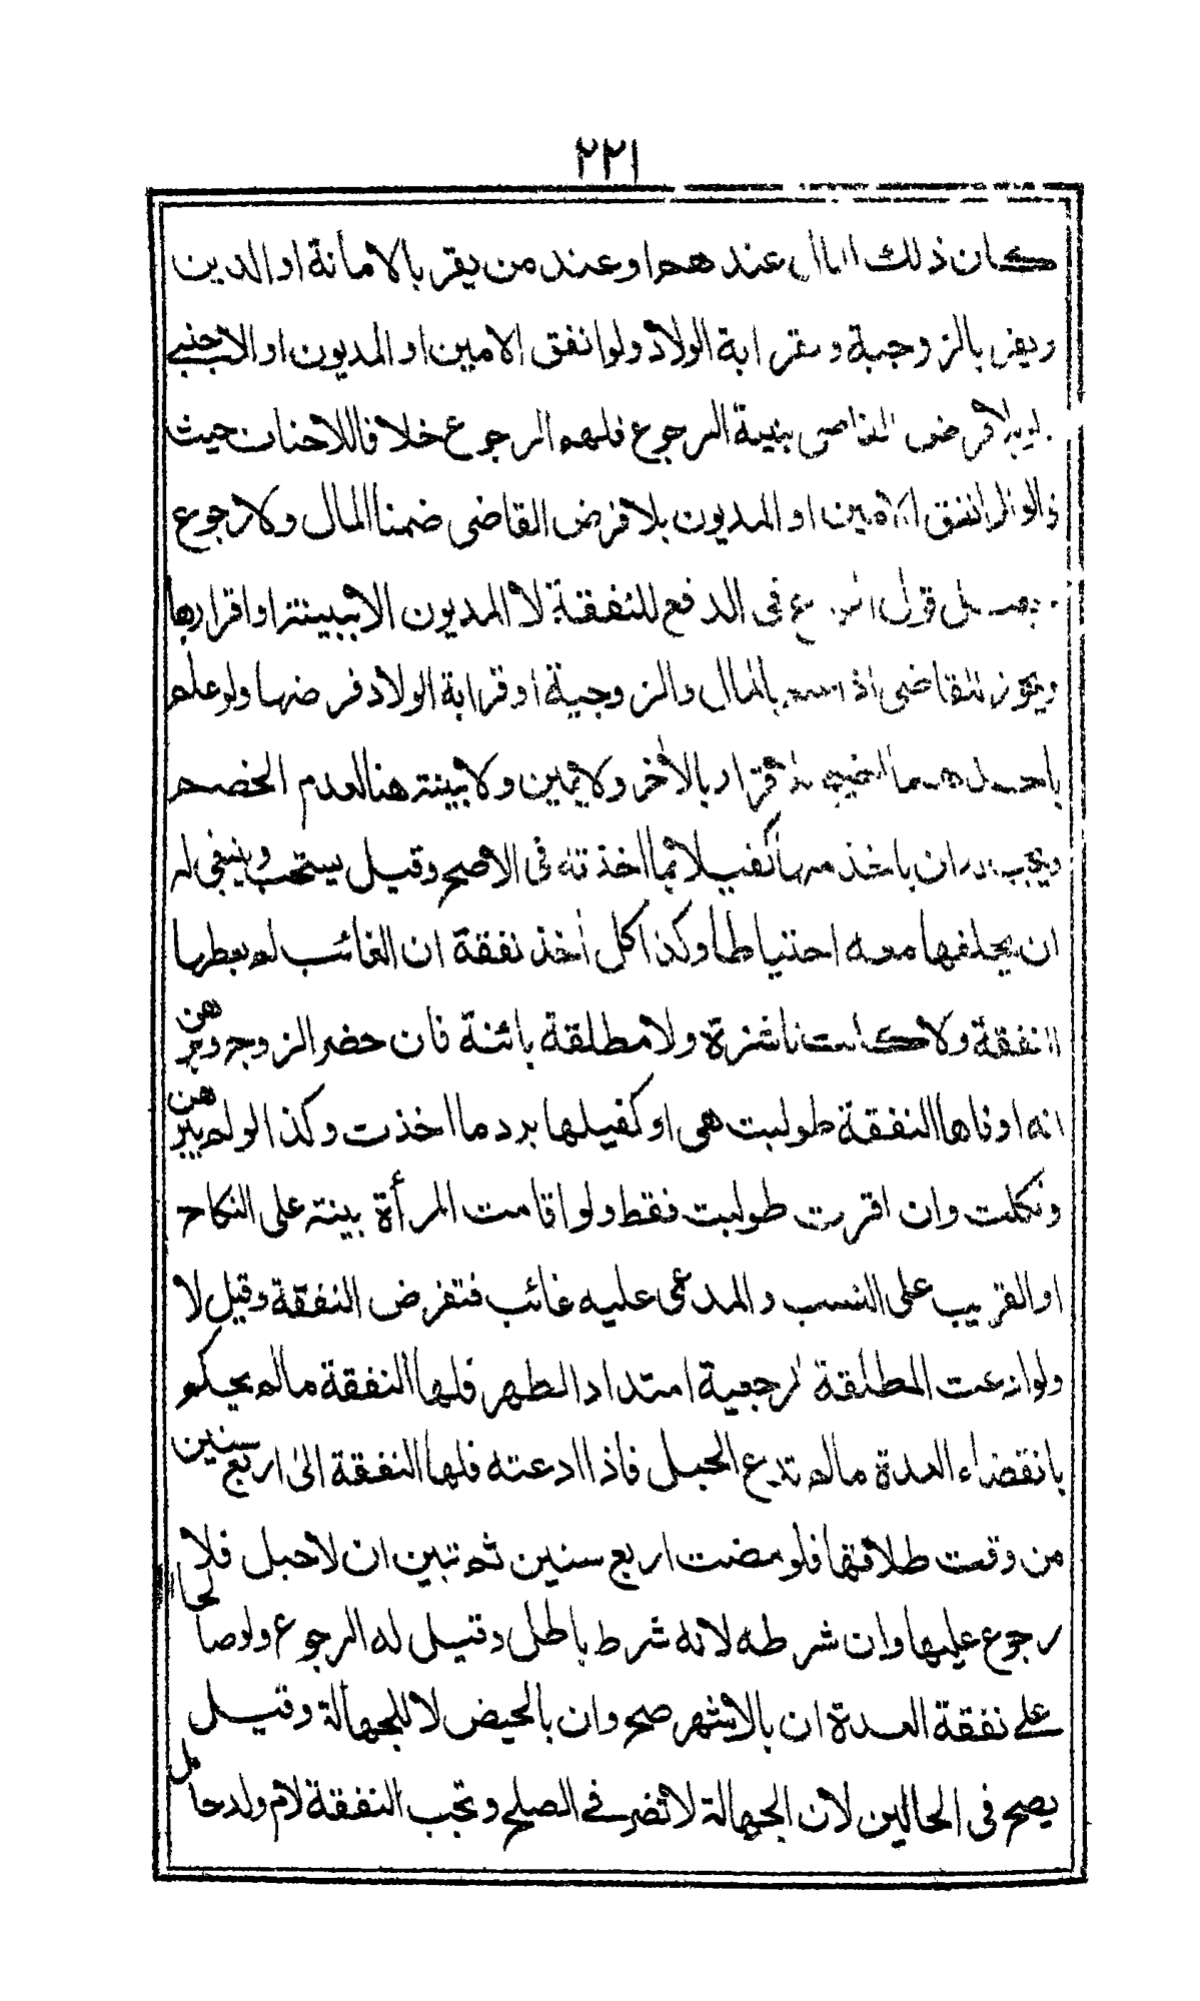 ٢٢١
كان ذلك المال عندهم او عند من يقر بالامانة او الدين
ويقر بالزوجية وبقرابة الولاد ولو انفق الامين او المديون او الاجنبى
بلا فرض القاضى بنية الرجوع فلهم الرجوع خلافا للاحناف حيث
قالوا لو انفق الامين او المديون بلا فرض القاضى ضمنا المال ولا رجوع
قول فى الدفع للنفقة لا المديون الا ببينة او اقرارها
ويجوز للقاضى اذا بالمال والزوجية او قرابة الولاد فرضها ولو علم
باحدهما اقرار بالآخر ولا يمين ولا بينة هنا لعدم الخصم
ويجب ان ياخذ منها كفيلا بما اخذته فى الاصح وقيل يستحب وينبغى له
ان يحلفها معه احتياطا وكذا كل آخذ نفقة ان الغائب لم يعطها
النفقة ولا كانت ناشزة ولا مطلقة بائنة فان حضر الزوج وبرهن
انه اوفاها النفقة طولبت هى او كفيلها برد ما اخذت وكذا لو لم يبرهن
ونكلت وان اقرت طولبت فقط ولو اقامت المرأة بينة على النكاح
او القريب على النسب والمدعى عليه غائب فتفرض النفقة وقيل لا
ولو ادعت المطلقة الرجعية امتداد الطهر فلها النفقة ما لم يحكم
بانقضاء العدة ما لم تدع الحبل فاذا ادعته فلها النفقة الى اربع سنين
من وقت طلاقها فلو مضت اربع سنين ثم تبين ان لا حبل فلا
رجوع عليها وان شرطه لانه شرط باطل وقيل له الرجوع ولو صالحا
على نفقة العدة ان بالاشهر صح وان بالحيض لا للجهالة وقيل
يصح فى الحالين لان الجهالة لا تضر فى الصلح وتجب النفقة لام ولد حامل